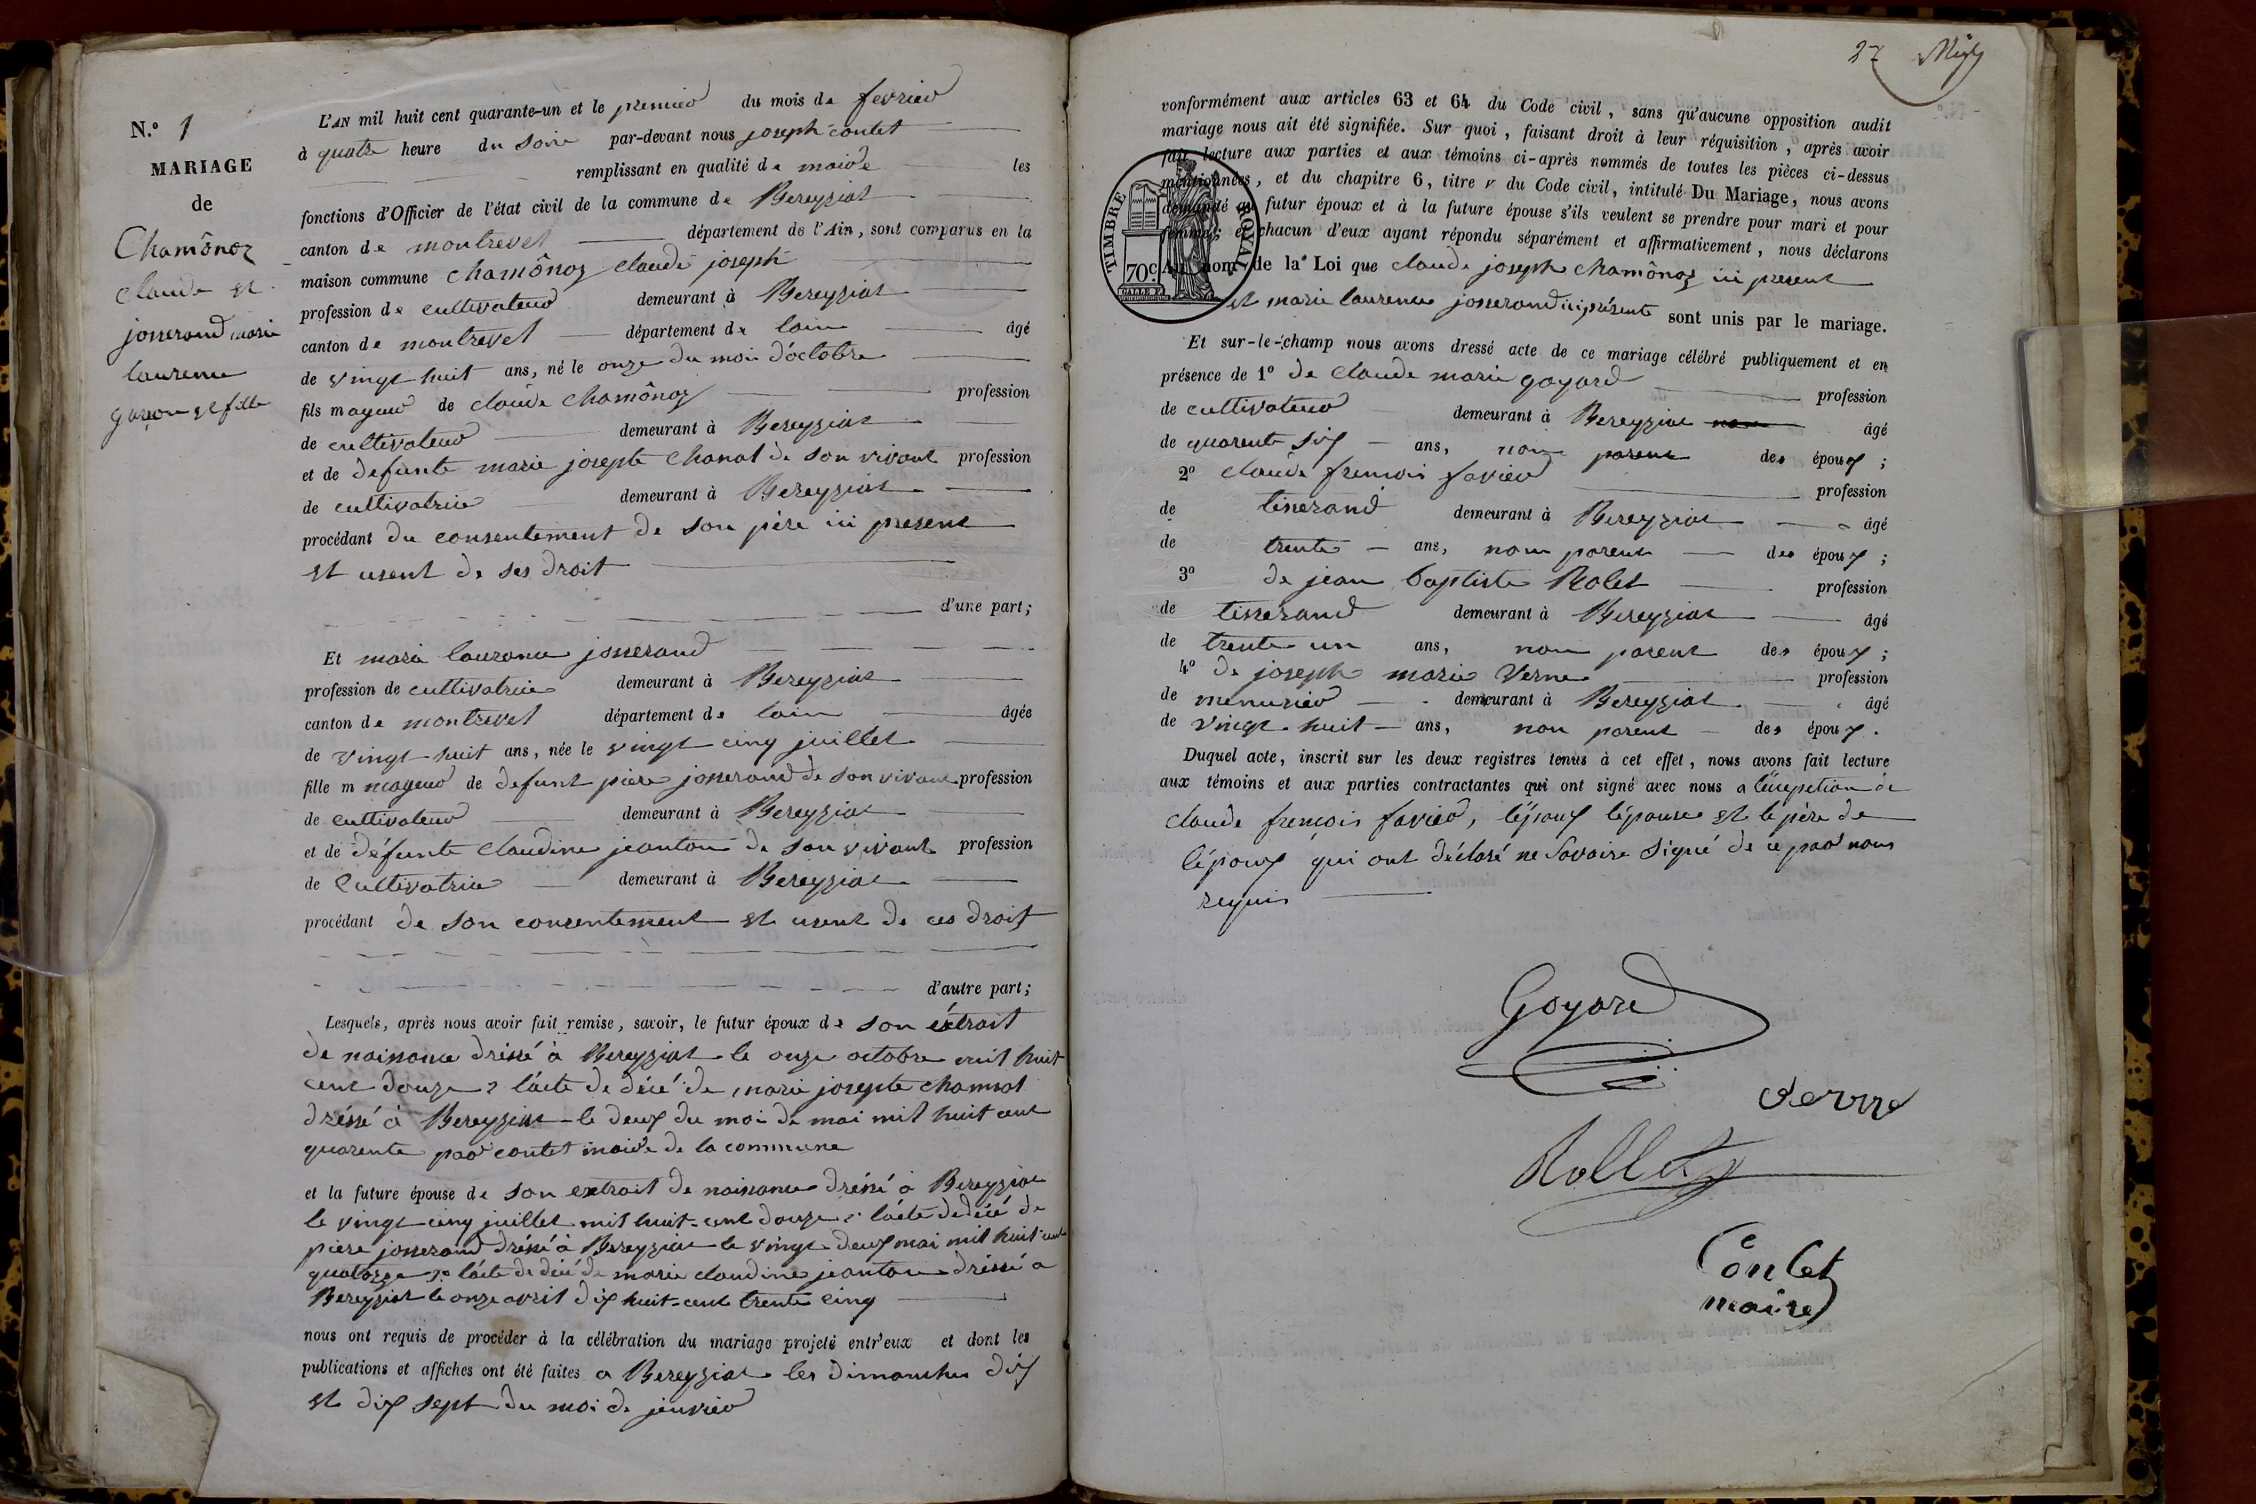 N.º 1
MARIAGE
de
Chamônoz
claude et
josserand marie
laurence
garçon et fille
L'AN mil huit cent quarante-un et le premier du mois de fevrier
à quatre heure du soire par-devant nous joseph contet
remplissant en qualité de maire les
fonctions d'Officier de l'état civil de la commune de Bereyziat
canton de montrevel département de l'Ain, sont comparus en la
maison commune chamônoz claude joseph
profession de cultivateur demeurant à Bereyziat
canton de montrevel département de lain âgé
de vingt huit ans, né le onze du moi d'octobre
fils mageur de claude chamônoz profession
de cultivateur demeurant à Bereyziat
et de defunte marie josepte chanat de son vivant profession
de cultivatrice demeurant à Bereyziat
procédant du consentement de son père ici present
et usent de ses droit
d'une part;
Et marie laurance josserand
profession de cultivatrice demeurant à Bereyziat
canton de montrevel département de lain âgée
de vingt huit ans, née le vingt cinq juillet
fille m mageur de defunt piere josserand de son vivant profession
de cultivateur demeurant à Bereyziat
et de défunte claudine jeanton de son vivant profession
de Cultivatrice demeurant à Bereyziat
procédant de son consentement et usent de ces droit
d'autre part;
Lesquels, après nous avoir fait remise, savoir, le futur époux de son extrait
de naissance dréssé à Bereyziat le onze octobre mil huit
cent douze 2 lácte de décé de marie josepte chamnat
dréssé à Bereyziat le deux du moi de mai mil huit cent
quarente par contet maire de la commune
et la future épouse de son extrait de naissance dréssé à Bereyziat
le vingt cinq juillet mil huit-cent douze 2 lácte de décé de
piere josserand dréssé à Bereyziat le vingt deux mai mil huit cent
quatorze 3º lácte de décé de marie claudine jeanton dréssé a
Bereyziat le onze avril dix huit-cent trente cinq
nous ont requis de procéder à la célébration du mariage projeté entr'eux et dont les
publications et affiches ont été faites a Bereyziat les dimanches dix
et dix sept du moi de jenvier
27
conformément aux articles 63 et 64 du Code civil, sans qu'aucune opposition audit
mariage nous ait été signifiée. Sur quoi, faisant droit à leur réquisition, après avoir
fait lecture aux parties et aux témoins ci-après nommés de toutes les pièces ci-dessus
mentionnées, et du chapitre 6, titre v du Code civil, intitulé Du Mariage, nous avons
demandé au futur époux et à la future épouse s'ils veulent se prendre pour mari et pour
femme; et chacun d'eux ayant répondu séparément et affirmativement, nous déclarons
Au nom de la Loi que claude joseph chamônoz ici present
et marie laurence josserand ici présente sont unis par le mariage.
TIMBRE ROYAL
70c
Et sur-le-champ nous avons dressé acte de ce mariage célébré publiquement et en
présence de 1º de claude marie goyard profession
de cultivateur demeurant à Bereyziat âgé
de quarente six ans, non parent des époux ;
2º claude frencois favier profession
de tisserand demeurant à Bereyziat âgé
de trente ans, non parent des époux ;
3º de jean baptiste Rolet profession
de tisserand demeurant à Bereyziat âgé
de trente un ans, non parent des époux ;
4º de joseph marie Verne profession
de menusier demeurant à Bereyziat âgé
de vingt huit ans, non parent des époux .
Duquel acte, inscrit sur les deux registres tenus à cet effet, nous avons fait lecture
aux témoins et aux parties contractantes qui ont signé avec nous a léxception de
claude frencois favier, lépoux lépouse et le père de
lépoux qui ont déclaré ne savoire signé de ce par nous
requis
Goyard
verne
Rollet
Contet
maire